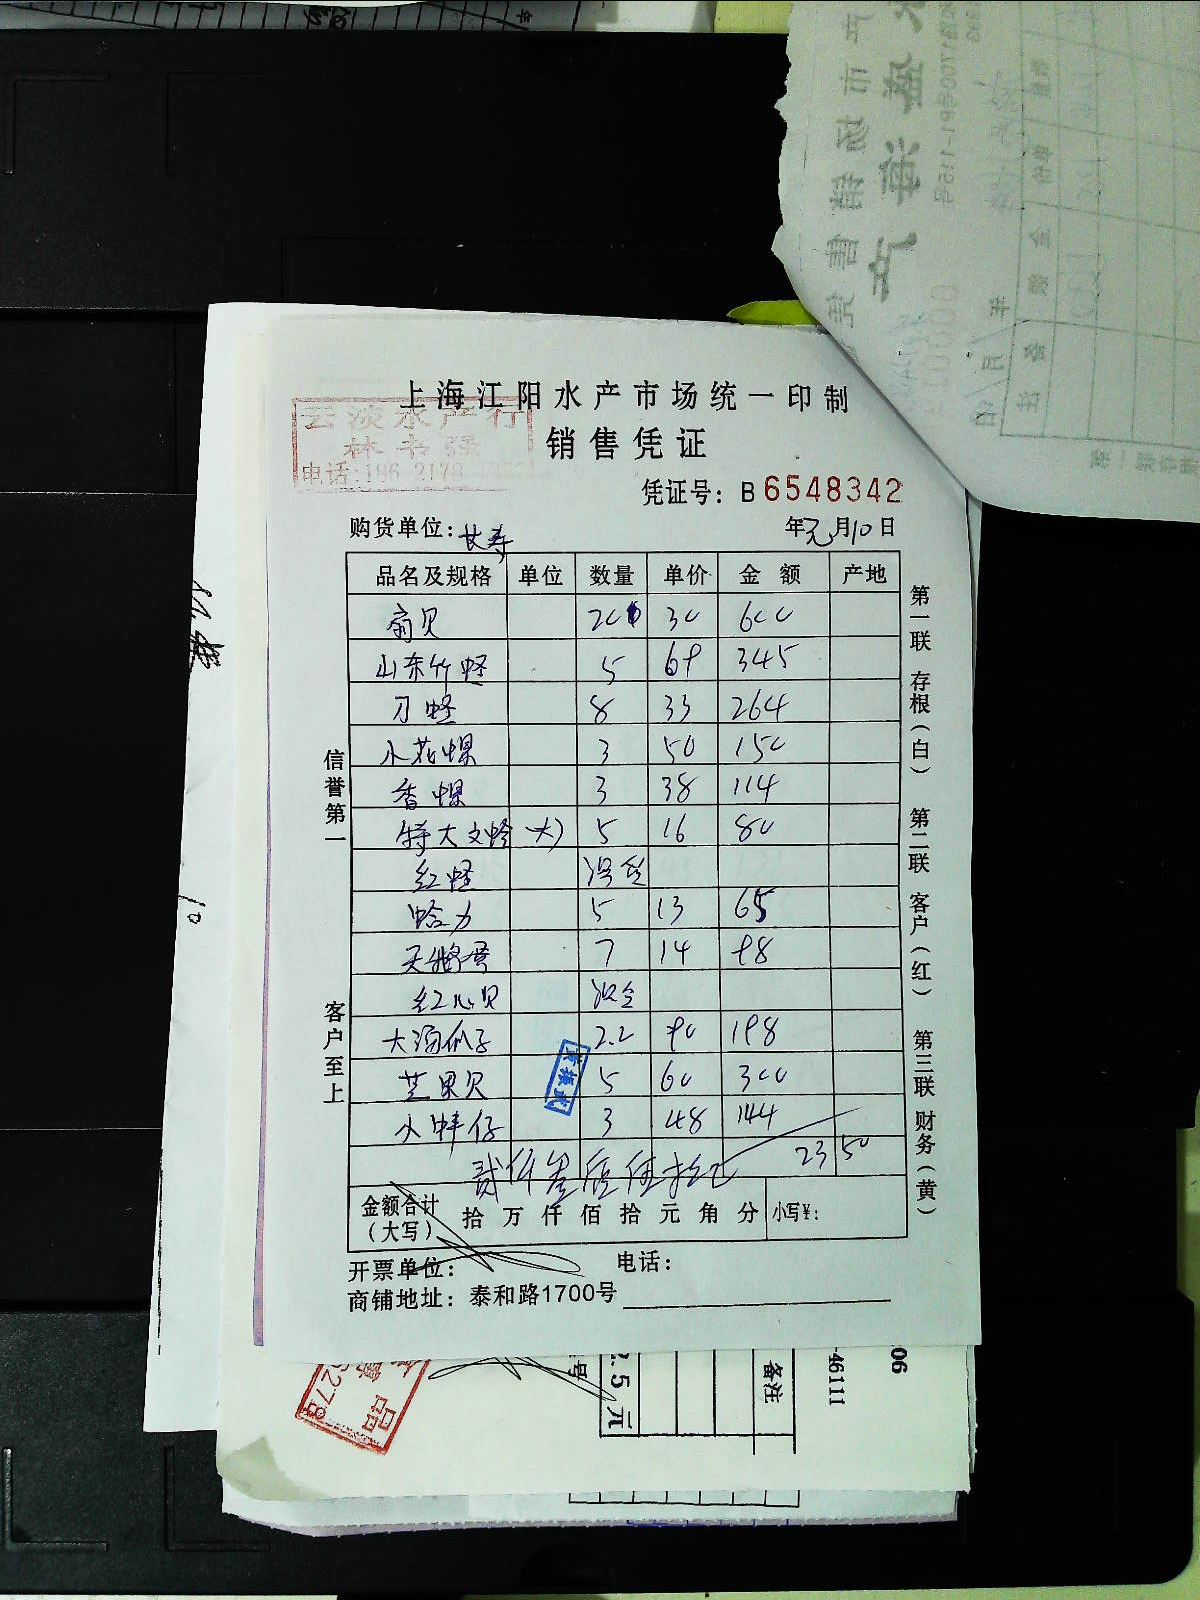 上海江阳水产市场统一印制
云淡水产行
销售凭证
林书强
电话:186 2178
凭证号: B 6548342
购货单位:
年 元 月 10 日
品名及规格 单位 数量 单价 金额 产地
扇贝 20 30 600
山东竹蛏 5 69 345
刀蛏 8 33 264
小花螺 3 50 150
香螺 3 38 114
特大文蛤 (大) 5 16 80
红蛏
蛤力 5 13 65
天鹅蛋 7 14 98
红心贝
大海瓜子 2.2 90 198
芒果贝 5 60 300
小蚌仔 3 48 144
贰仟叁佰伍拾元 2350
金额合计
(大写)
拾 万 仟 佰 拾 元 角 分 小写¥:
开票单位:
电话:
商铺地址: 泰和路1700号
信誉第一
客户至上
第一联 存根(白)
第二联 客户(红)
第三联 财务(黄)
2.5元
备注
46111
06